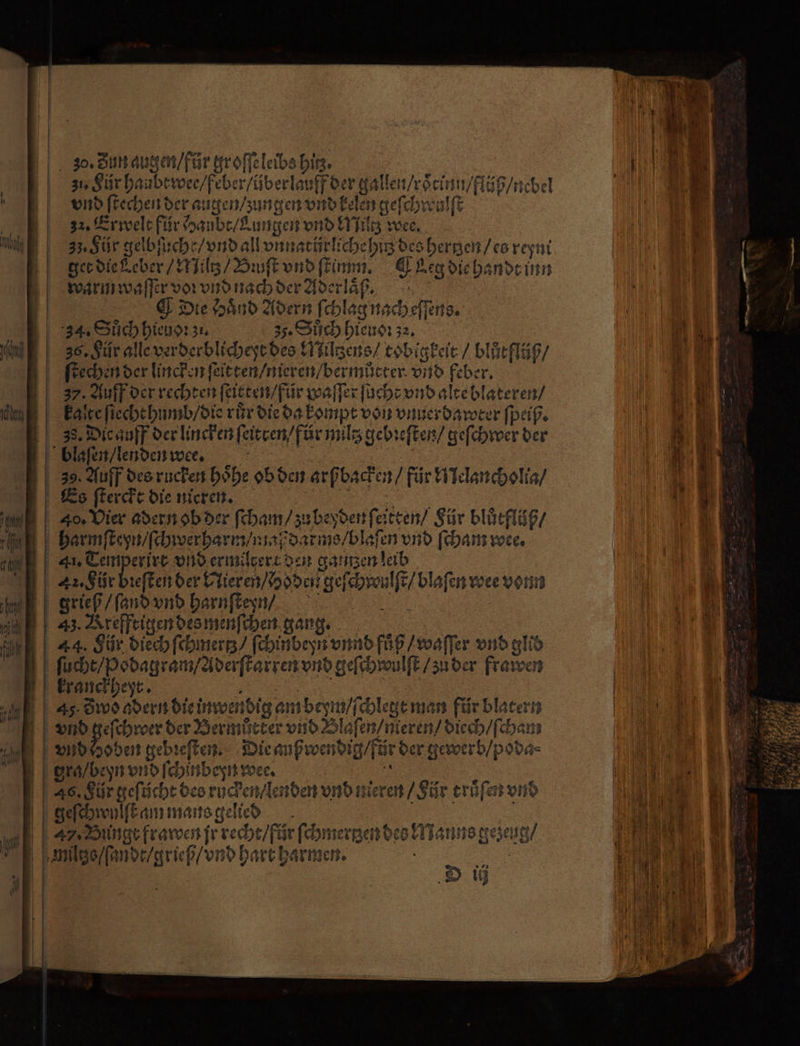 30. Zun augen/für groſſe leibs hitz.
31. Für haubtwee/feber/überlauff der gallen/rötinn/flüß/nebel
vnd ſtechen der augen/zungen vnd kelen geſchwulſt
32. Erwelt für Haubt/Lungen vnd Miltz wee.
33. Für gelbſucht/vnd all vnnatürliche hitz des hertzen/es reyni
get die Leber/Miltz/Bruſt vnd ſtimm. ¶ Leg die handt inn
warm waſſer vor vnd nach der Aderläß.
¶ Die Händ Adern ſchlag nach eſſens.
34. Sůch hieuor 31. 35. Sůch hieuor 32.
36. Für alle verderblicheyt des Miltzens/ tobigkeit / blůtflüß/
ſtechen der lincken ſeitten/nieren/bermůtter vnd feber.
37. Auff der rechten ſeitten/für waſſerſucht vnd alte blateren/
kalte ſiechthumb/die růr die da kompt von vnuerdawter ſpeiß.
38. Die auff der lincken ſeitten/für miltz gebreſten/ geſchwer der
blaſen/lenden wee.
39. Auff des rucken höhe ob den arßbacken / für Melancholia/
Es ſterckt die nieren.
40. Vier adern ob der ſcham/zu beyden ſeitten/ Für blůtflüß/
harmſteyn/ſchwerharm/maßdarms/blaſen vnd ſcham wee.
41. Temperirt vnd ermiltert den gantzen leib
42. Für breſten der Nieren/Hoden geſchwulſt/blaſen wee vonn
grieß / ſand vnd harnſteyn/
43. Krefftigen des menſchen gang.
44. Für diech ſchmertz/ ſchinbeyn vnnd fůß /waſſer vnd glid
ſucht/Podagram/Aderſtarren vnd geſchwulſt /zu der frawen
kranckheyt.
45. Zwo adern die inwendig am beyn/ſchlegt man für blatern
vnd geſchwer der Bermůtter vnd Blaſen/nieren/ diech/ſcham
vnd Hoden gebreſten. Die außwendig/für der gewerb/poda-
gra/beyn vnd ſchinbeyn wee.
46. Für geſücht des rucken/lenden vnd nieren / Für trůſen vnd
geſchwulſt am mans gelied
47. Bringt frawen jr recht/für ſchmertzen des Manns gezeug/
miltzs/ſandt/grieß/vnd hart harmen.
D iij